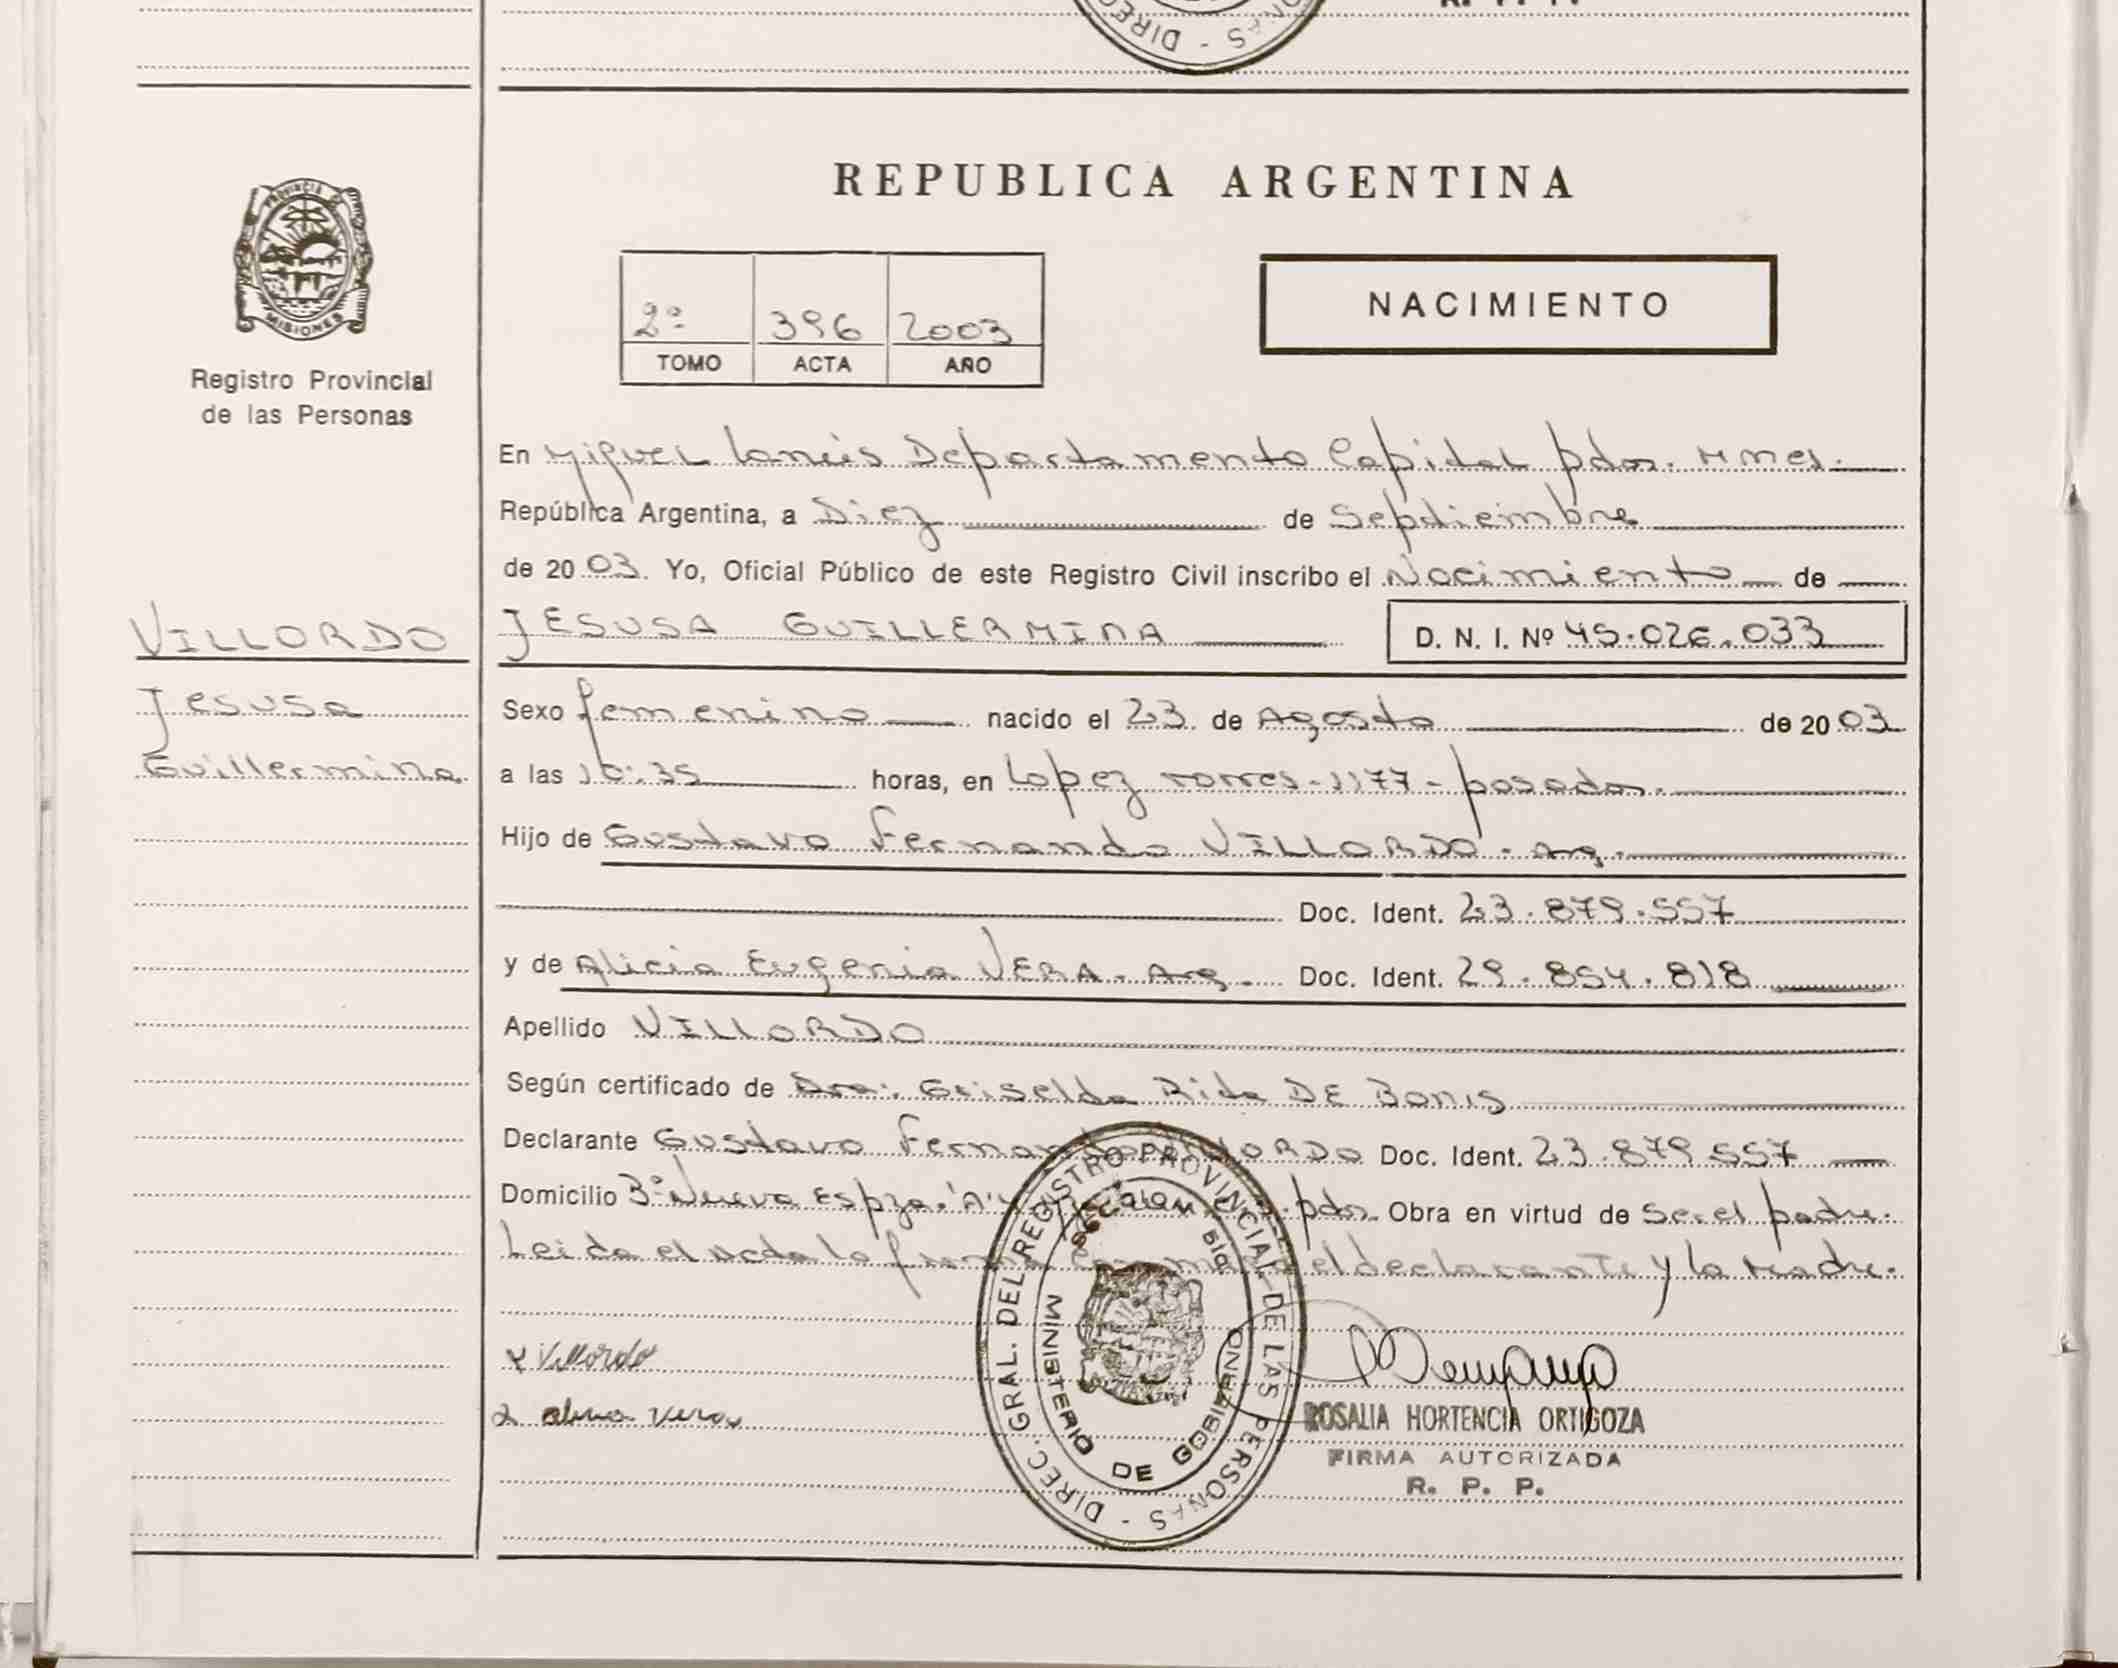 DIREC - NAS
R. P. P.
PROVINCIA
MISIONES
Registro Provincial
de las Personas
REPUBLICA ARGENTINA
2º 396 2003
TOMO ACTA AÑO
NACIMIENTO
En Miguel Lanús Departamento Capital pdas. Mnes.
República Argentina, a Diez de Septiembre
de 2003. Yo, Oficial Público de este Registro Civil inscribo el Nacimiento de
VILLORDO
Jesusa
Guillermina
JESUSA GUILLERMINA D. N. I. Nº 45.026.033
Sexo femenino nacido el 23 de Agosto de 2003
a las 10:35 horas, en Lopez Torres-1177-posadas.
Hijo de Gustavo Fernando VILLORDO. Arg.
Doc. Ident. 23.879.557
y de Alicia Eugenia VERA. Arg. Doc. Ident. 29.854.818
Apellido VILLORDO
Según certificado de Dra. Griselda Rita DE Bonis
Declarante Gustavo Fernando VILLORDO Doc. Ident. 23.879.557
Domicilio 3º Nueva Espza. "A" pdas. Obra en virtud de ser el padre.
Leida el acta la firma el declarante y la Madre.
Villordo
vera
DIREC. GRAL. DEL REGISTRO PROVINCIAL DE LAS PERSONAS -
MINISTERIO DE GOBIERNO
ROSALIA HORTENCIA ORTIGOZA
FIRMA AUTORIZADA
R. P. P.